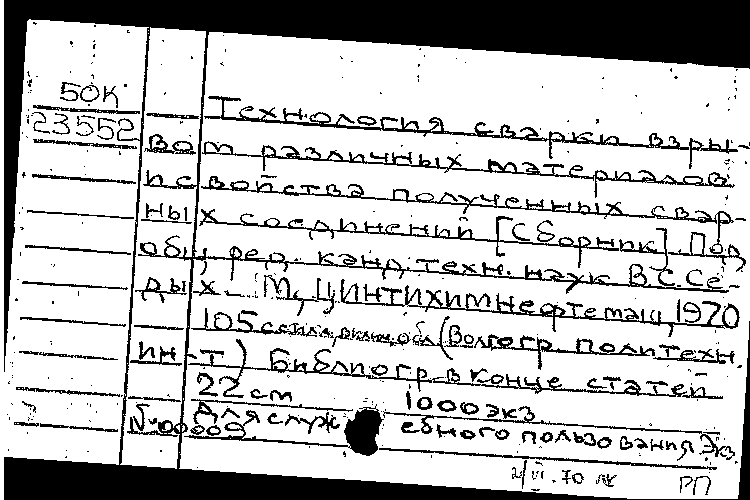 50К
23552
Технология сварки взры-
вом различных материалов
и свойства полученных свар-
ных соединений [Сборник]. Под
общ. ред. канд. техн. наук В.С. Се-
дых. М., ЦИНТИХИМнефтемаш, 1970
105 с. с илл., включ. обл. (Волгогр. политехн.
ин-т) Библиогр. в конце статей
22 см. 1000 экз.
Для служебного пользования. Экз.
№ 00009.
70
РП